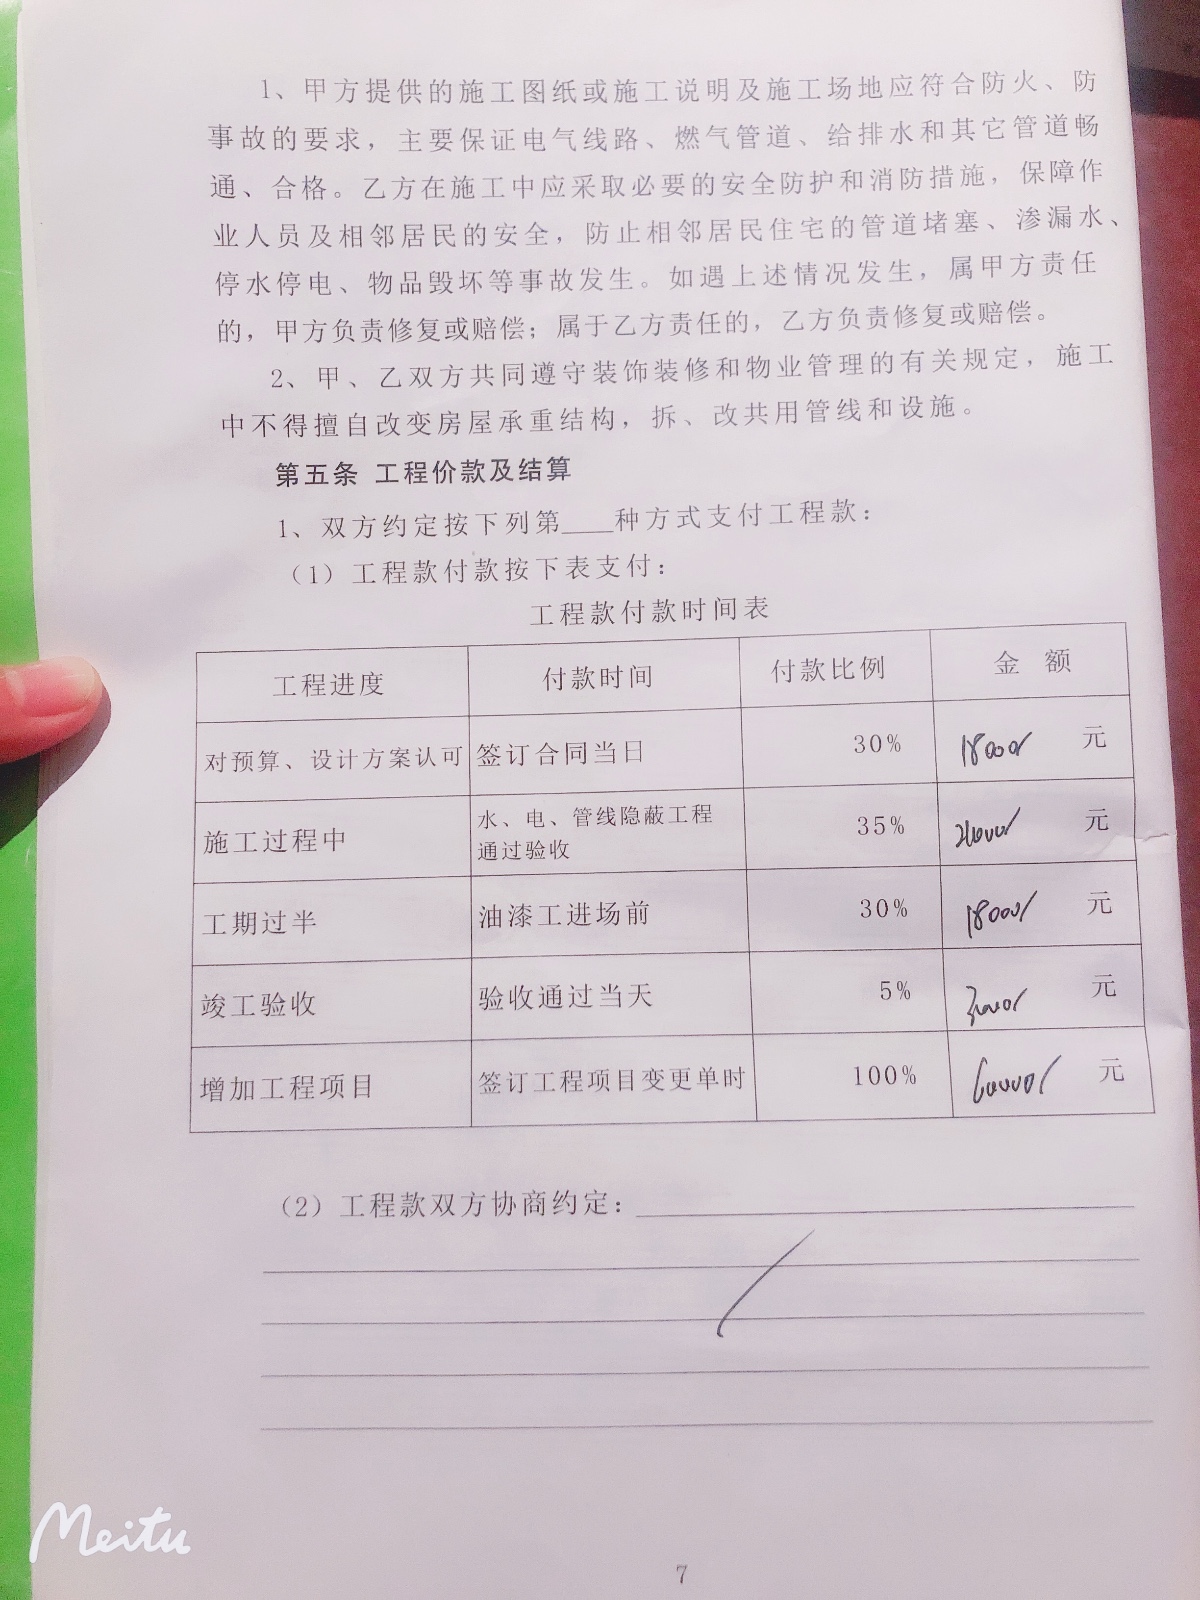 1、甲方提供的施工图纸或施工说明及施工场地应符合防火、防
事故的要求，主要保证电气线路、燃气管道、给排水和其它管道畅
通、合格。乙方在施工中应采取必要的安全防护和消防措施，保障作
业人员及相邻居民的安全，防止相邻居民住宅的管道堵塞、渗漏水、
停水停电、物品毁坏等事故发生。如遇上述情况发生，属甲方责任
的，甲方负责修复或赔偿；属于乙方责任的，乙方负责修复或赔偿。
2、甲、乙双方共同遵守装饰装修和物业管理的有关规定，施工
中不得擅自改变房屋承重结构，拆、改共用管线和设施。
第五条 工程价款及结算
1、双方约定按下列第____种方式支付工程款：
（1）工程款付款按下表支付：
工程款付款时间表
工程进度 付款时间 付款比例 金 额
对预算、设计方案认可 签订合同当日 30% 18000 元
施工过程中 水、电、管线隐蔽工程
通过验收 35% 21000 元
工期过半 油漆工进场前 30% 18000 元
竣工验收 验收通过当天 5% 3000 元
增加工程项目 签订工程项目变更单时 100% 60000 元
（2）工程款双方协商约定：
7
Meitu